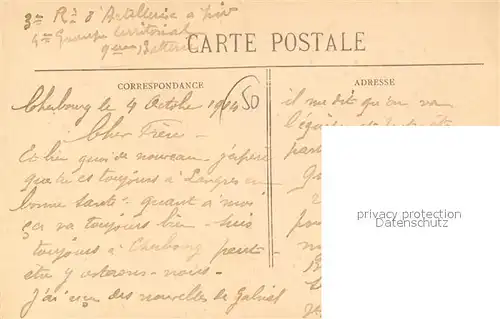 3me Rt d'Artillerie à pied
4me Groupe territorial
Batterie
CARTE POSTALE
CORRESPONDANCE
ADRESSE
Cherbourg le 4 Octobre 1914
50
Cher Frère -
Et bien quoi de nouveau - j'espère
que tu es toujours à Langres en
bonne santé - quant à moi
ça va toujours bien - suis
toujours à Cherbourg peut
être y resterons - nous -
J'ai eu des nouvelles de Gabriel
il me dit qu'on va
l'équiper
privacy protection
Datenschutz